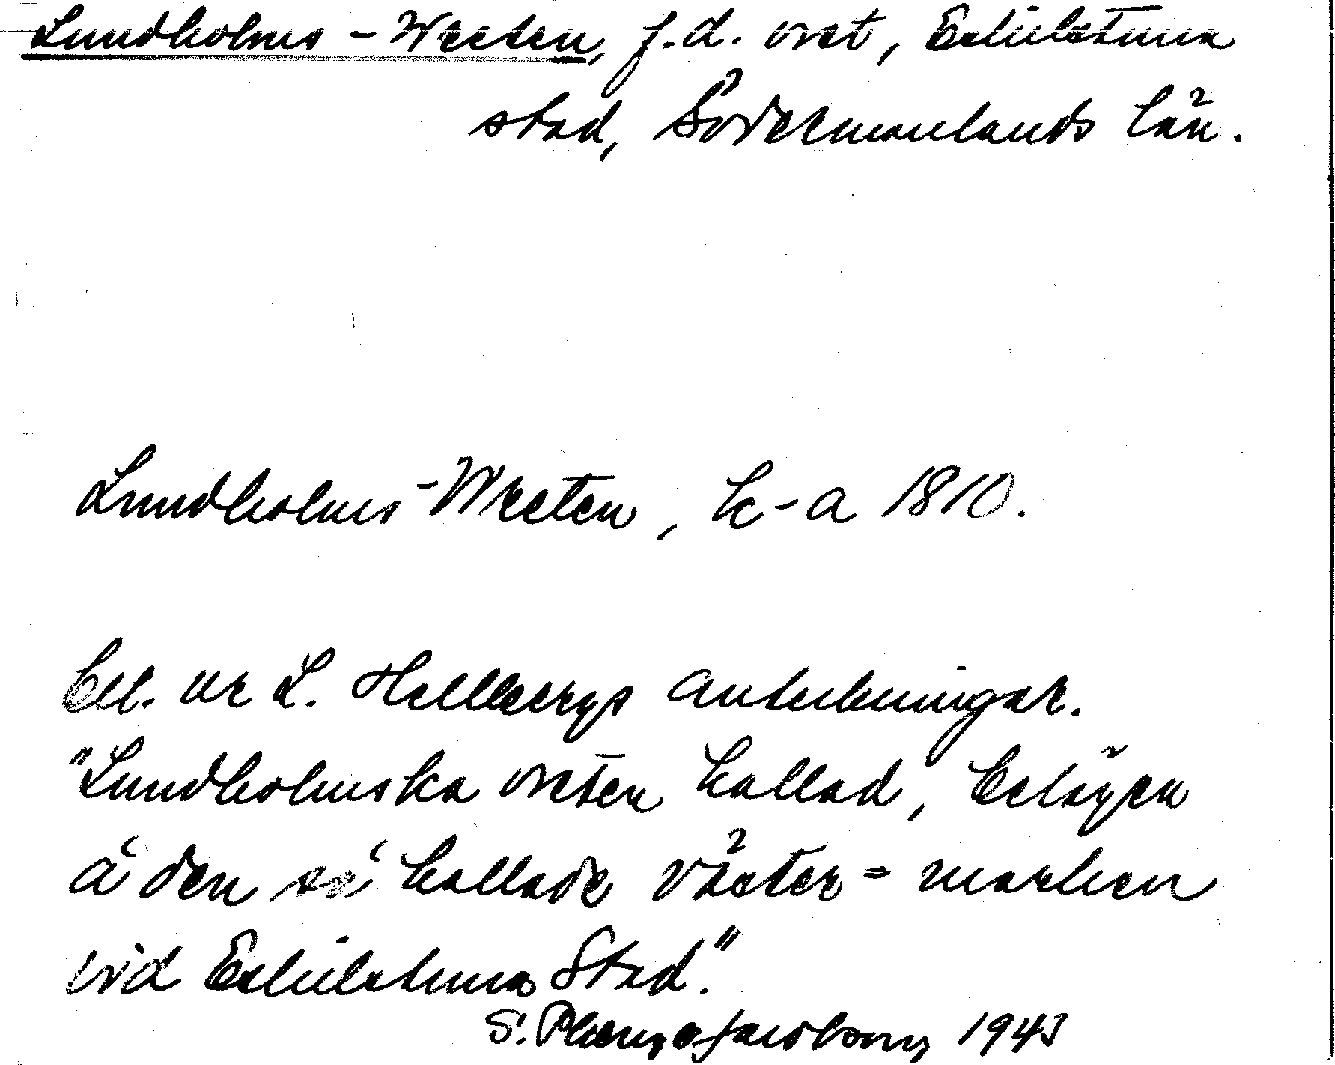 Lundholms-Wreten, f.d. vret, Eskilstuna
stad, Södermanlands län.
Lundholms-Wreten, k-a 1810.
Utl. ur L. Hellbergs anteckningar.
"Lundholmska vreten kallad, belägen
å den så kallade väster-marken
vid Eskilstuna Stad."
1943